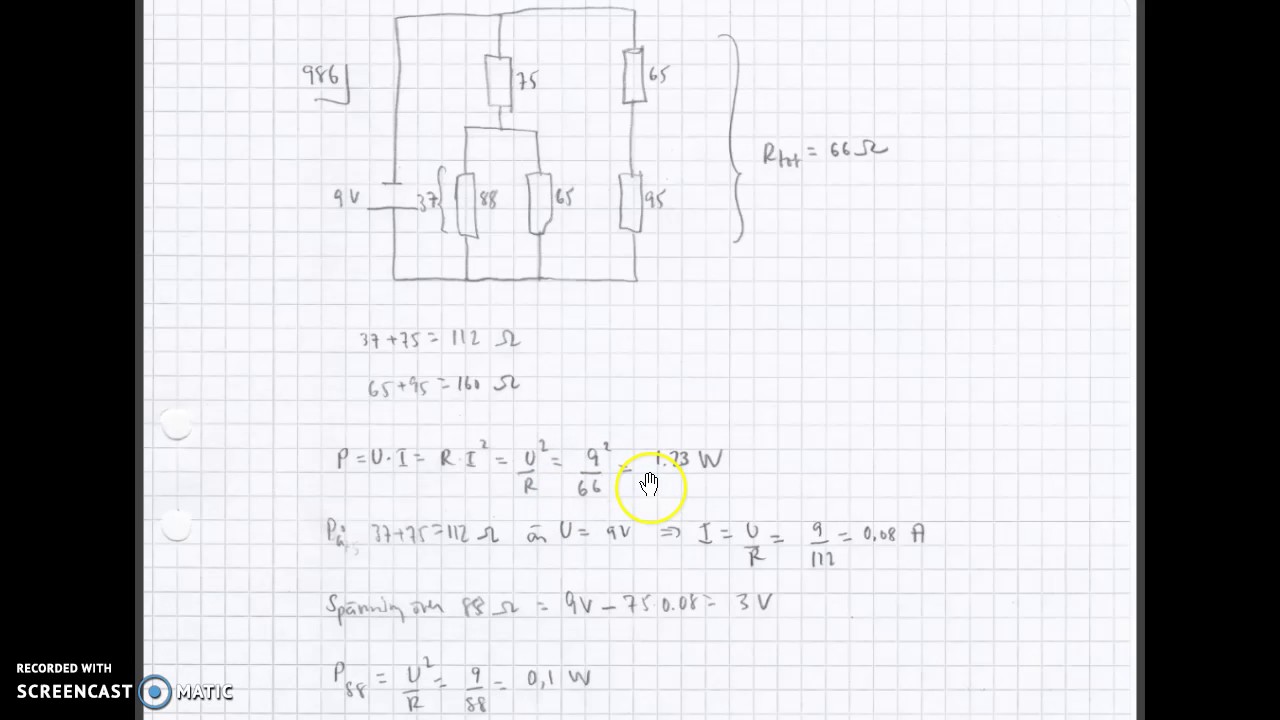 986
75
65
Rtot = 66 Ω
9V
37
88
65
95
37+75 = 112 Ω
65+95 = 160 Ω
P = U·I = R·I² = U²/R = 9²/66 = 1.23 W
På 37+75=112 Ω än U = 9V ⇒ I = U/R = 9/112 = 0,08 A
Spänning över 88 Ω = 9V − 75·0.08 = 3V
P88 = U²/R = 9/88 = 0,1 W
RECORDED WITH
SCREENCAST MATIC